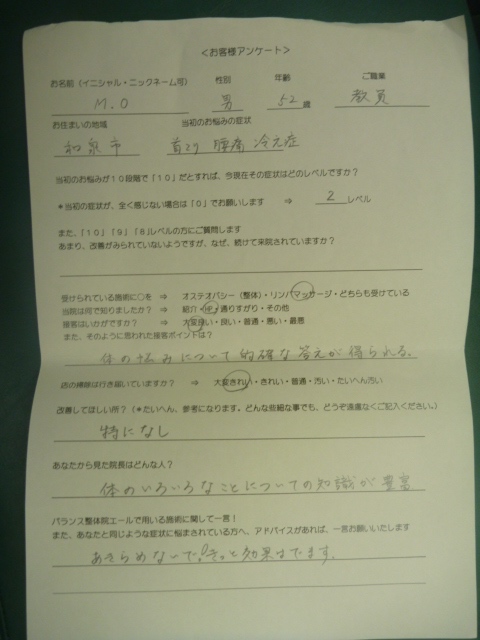 <お客様アンケート>
お名前（イニシャル・ニックネーム可） 性別 年齢 ご職業
M.O 男 52歳 教員
お住まいの地域 当初のお悩みの症状
和泉市 首こり 腰痛 冷え症
当初のお悩みが１０段階で「１０」だとすれば、今現在その症状はどのレベルですか？
＊当初の症状が、全く感じない場合は「０」でお願いします ⇒ 2 レベル
また、「１０」「９」「８」レベルの方にご質問します
あまり、改善がみられていないようですが、なぜ、続けて来院されていますか？
受けられている施術に○を ⇒ オステオパシー（整体）・リンパマッサージ・どちらも受けている
当院は何で知りましたか？ ⇒ 紹介・HP・通りすがり・その他
接客はいかがですか？ ⇒ 大変良い・良い・普通・悪い・最悪
また、そのように思われた接客ポイントは？
体の悩みについて的確な答えが得られる。
店の掃除は行き届いていますか？ ⇒ 大変きれい・きれい・普通・汚い・たいへん汚い
改善してほしい所？（＊たいへん、参考になります。どんな些細な事でも、どうぞ遠慮なくご記入ください。）
特になし
あなたから見た院長はどんな人？
体のいろいろなことについての知識が豊富
バランス整体院エールで用いる施術に関して一言！
また、あなたと同じような症状に悩まされている方へ、アドバイスがあれば、一言お願いいたします
あきらめないで！きっと効果はでます。